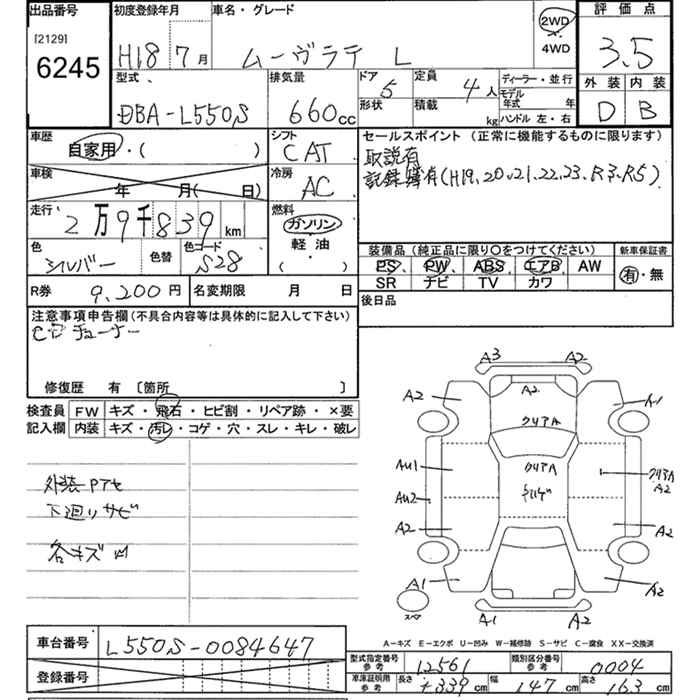 出品番号 初度登録年月 車名・グレード 2WD 評価点
[2129] 6245 H18 7月 ムーヴラテ L 4WD 3.5
型式 排気量 ドア 5 定員 4人 ディーラー・並行 外装 内装
DBA-L550S 660cc 形状 積載 kg モデル年式 年 D B
ハンドル 左・右
車歴 シフト セールスポイント(正常に機能するものに限ります)
自家用・( ) CAT 取説有
車検 年 月( 日) 冷房 AC 記録簿有(H19、20、21、22、23、R3、R5)
走行 2万9千839km 燃料 ガソリン
軽油
( )
色 シルバー 色替 色コード S28
装備品(純正品に限り○をつけてください) 新車保証書
PS PW ABS エアB AW 有・無
SR ナビ TV カワ
R券 9,200円 名変期限 月 日 後日品
注意事項申告欄(不具合内容等は具体的に記入して下さい)
CDチューナー
修復歴 有 [箇所 ]
検査員 FW キズ・飛石・ヒビ割・リペア跡・×要
記入欄 内装 キズ・汚レ・コゲ・穴・スレ・キレ・破レ
外装Pアセ
下廻りサビ
各キズ
A3 A2
A2 A2 A1
クリアA
AU1 クリアA クリアA
A2
AU2
A2 A2
A1 A2
スペア
A1 A2
A-キズ E-エクボ U-凹み W-補修跡 S-サビ C-腐食 XX-交換済
車台番号 L550S-0084647
型式指定番号 参考 12561 類別区分番号 参考 0004
登録番号
車庫証明用 参考 長さ 339cm 幅 147cm 高さ 163cm